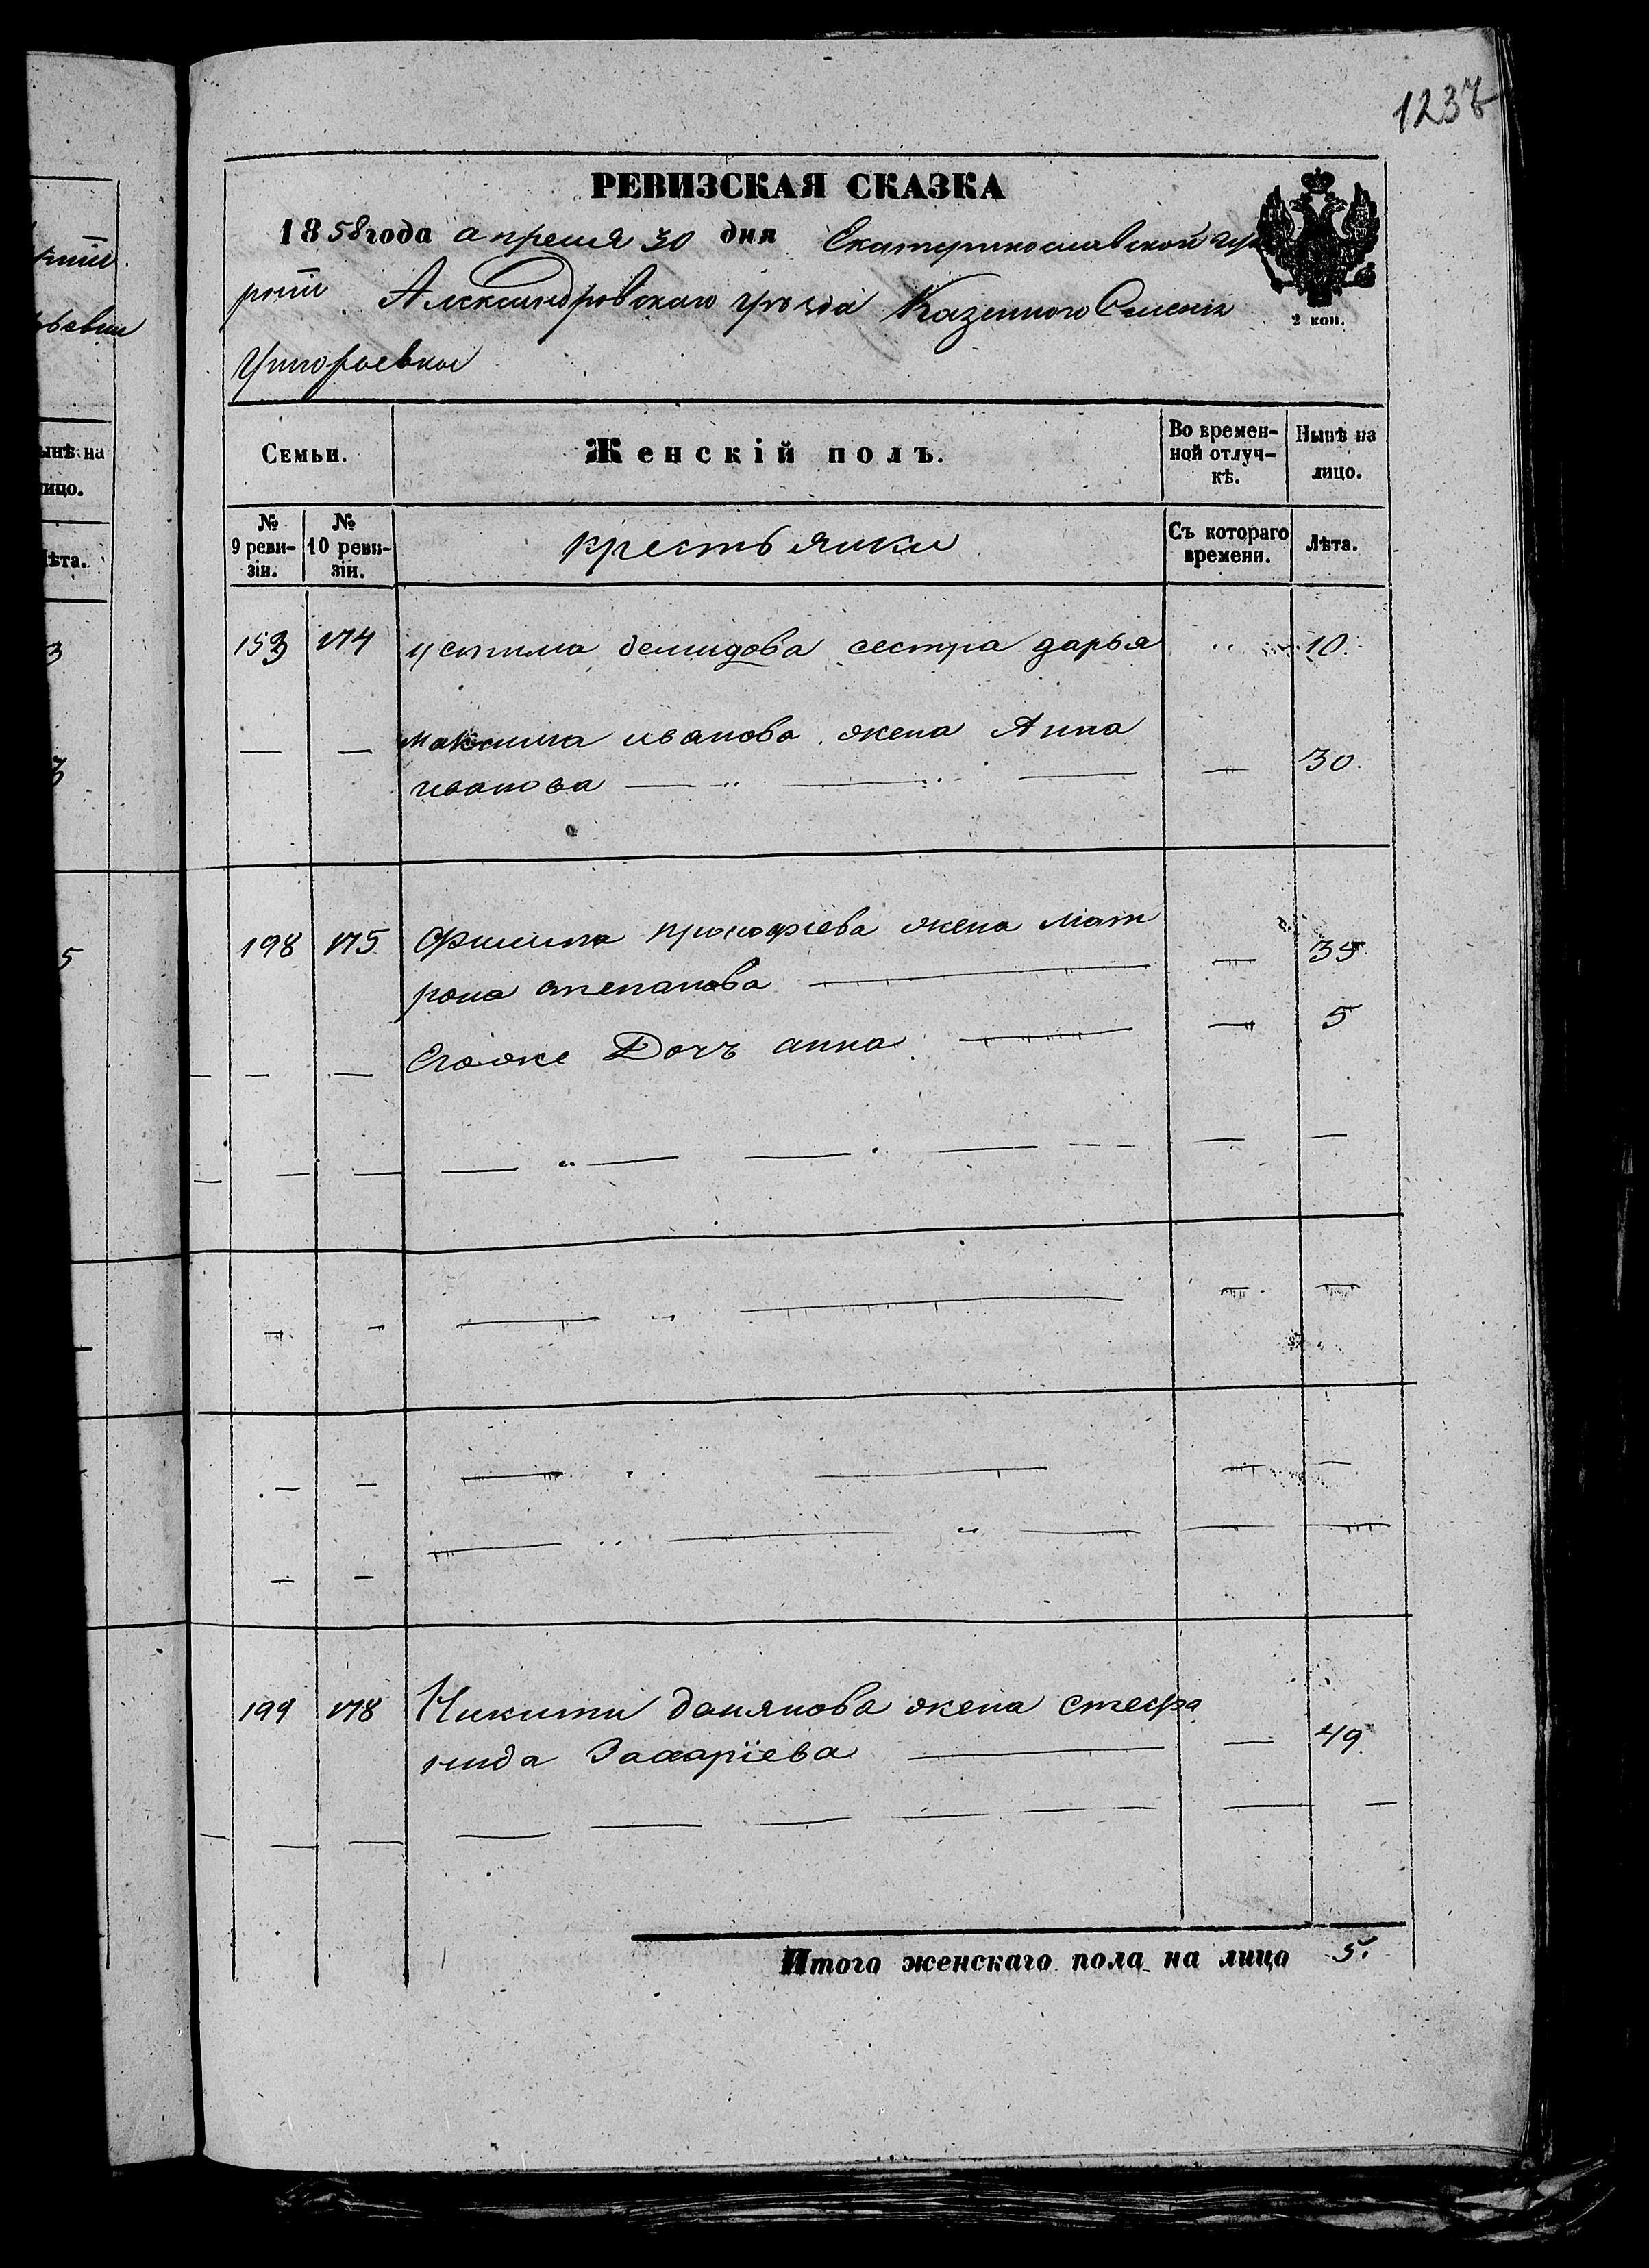 1237
РЕВИЗСКАЯ СКАЗКА
1858 года апреля 30 дня Екатеринославской губе
рнiи Александровскаго уѣзда Казенного Селенiя
Григорьевки
2 коп.
Семьи.
Женскiй полъ.
Во времен-
ной отлуч-
кѣ.
Нынѣ на
лицо.
№
9 реви-
зiи.
№
10 реви-
зiи.
крестьянки
Съ котораго
времени.
Лѣта.
153 174 устима демидова сестра дарья " 10.
— — максима иванова жена Анна
иванова — " — " — — 30.
198 175 Филипа прокофiева жена мат
рона степанова — — 35
— — — Егоже Дочъ анна — — 5
199 178 Никити демянова жена стефа
нида Захарiева — — 49.
Итого женскаго пола на лицо 5.
ынѣ на
ицо.
ѣта.
3
5